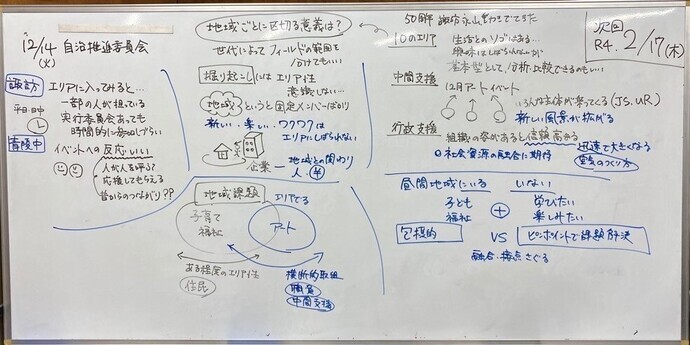 12/14(火) 自治推進委員会
諏訪
平日日中
青陵中
エリアに入ってみると…
一部の人が担っている
実行委員会あっても
時間的に参加しづらい
イベントへの反応いい
人が人を呼ぶ?
応援してもらえる
昔からのつながり??
地域ごとに区切る意義は?
世代によってフィールドの範囲を
分けてもいい
掘り起こしにはエリア性
意識しない…
地域というと固定メンバーばかり
新しい・楽しい・ワクワクは
エリアにしばられない
企業
地域との関わり
人・¥
地域課題
エリアでる
子育て
福祉
アート
ある程度のエリア性
住民
横断的取組
職員
中間支援
50周年
10のエリア
生活とのソゴはある…
基本型として/分析・比較できるのもいい
中間支援
12月アートイベント
いろんな主体が乗ってくる(JS.UR)
新しい風景が拡がる
行政支援
組織の名があると信頼高まる
迅速で大きくなる
社会資源の融合に期待
空気のつくり方
昼間地域にいる
いない
子ども
福祉
+
学びたい
楽しみたい
包括的
VS
ピンポイントで課題解決
融合・接点さぐる
次回
R4. 2/17(木)